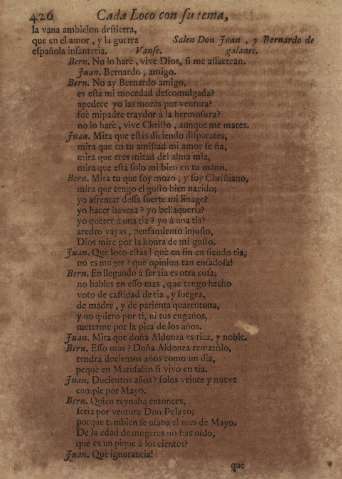 426 Cada Loco con su tema,
la vana ambicion destierra,
que en el amor, y la guerra Salen Don Juan, y Bernardo de
española infanteria. Vanse. galanes.
Bern. No lo haré, vive Dios, si me assaetean.
Juan. Bernardo, amigo.
Bern. No ay Bernardo amigo,
es esta mi mocedad descomulgada?
apedreè yo las mozas por ventura?
fue mi padre traydor à la hermosura?
no lo haré, vive Christo, aunque me mates.
Juan. Mira que estàs diciendo disparates,
mira que en tu amistad mi amor se fia,
mira que eres mitad del alma mia,
mira que està solo mi bien en tu mano.
Bern. Mira tu que soy mozo, y soy Christiano,
mira que tengo el gusto bien nacido;
yo afrentar dessa suerte mi linage?
yo hacer baxeza? yo bellaqueria?
yo querer à una tia? yo à una tia?
arredro vayas, pensamiento injusto,
Dios mire por la honra de mi gusto.
Juan. Què loco estàs! què en fin en siendo tia,
no es muger? què opinion tan enfadosa!
Bern. En llegando à ser tia es otra cosa,
no hables en esso mas, que tengo hecho
voto de castidad de tia, y suegra,
de madre, y de parienta quarentona,
y no quiero por ti, ni tus engaños,
meterme por la pica de los años.
Juan. Mira que doña Aldonza es rica, y noble.
Bern. Esso mas? Doña Aldonza
tendrà ducientos años como un dia,
pequè en Matusalèn si vivo en tia.
Juan. Ducientos años? solos veinte y nueve
cumple por Mayo.
Bern. Quien reynaba entonces,
seria por ventura Don Pelayo;
porque tambien se usaba el mes de Mayo.
De la edad de mugeres no has oido,
que es un pique à los cientos?
Juan. Què ignorancia!
que